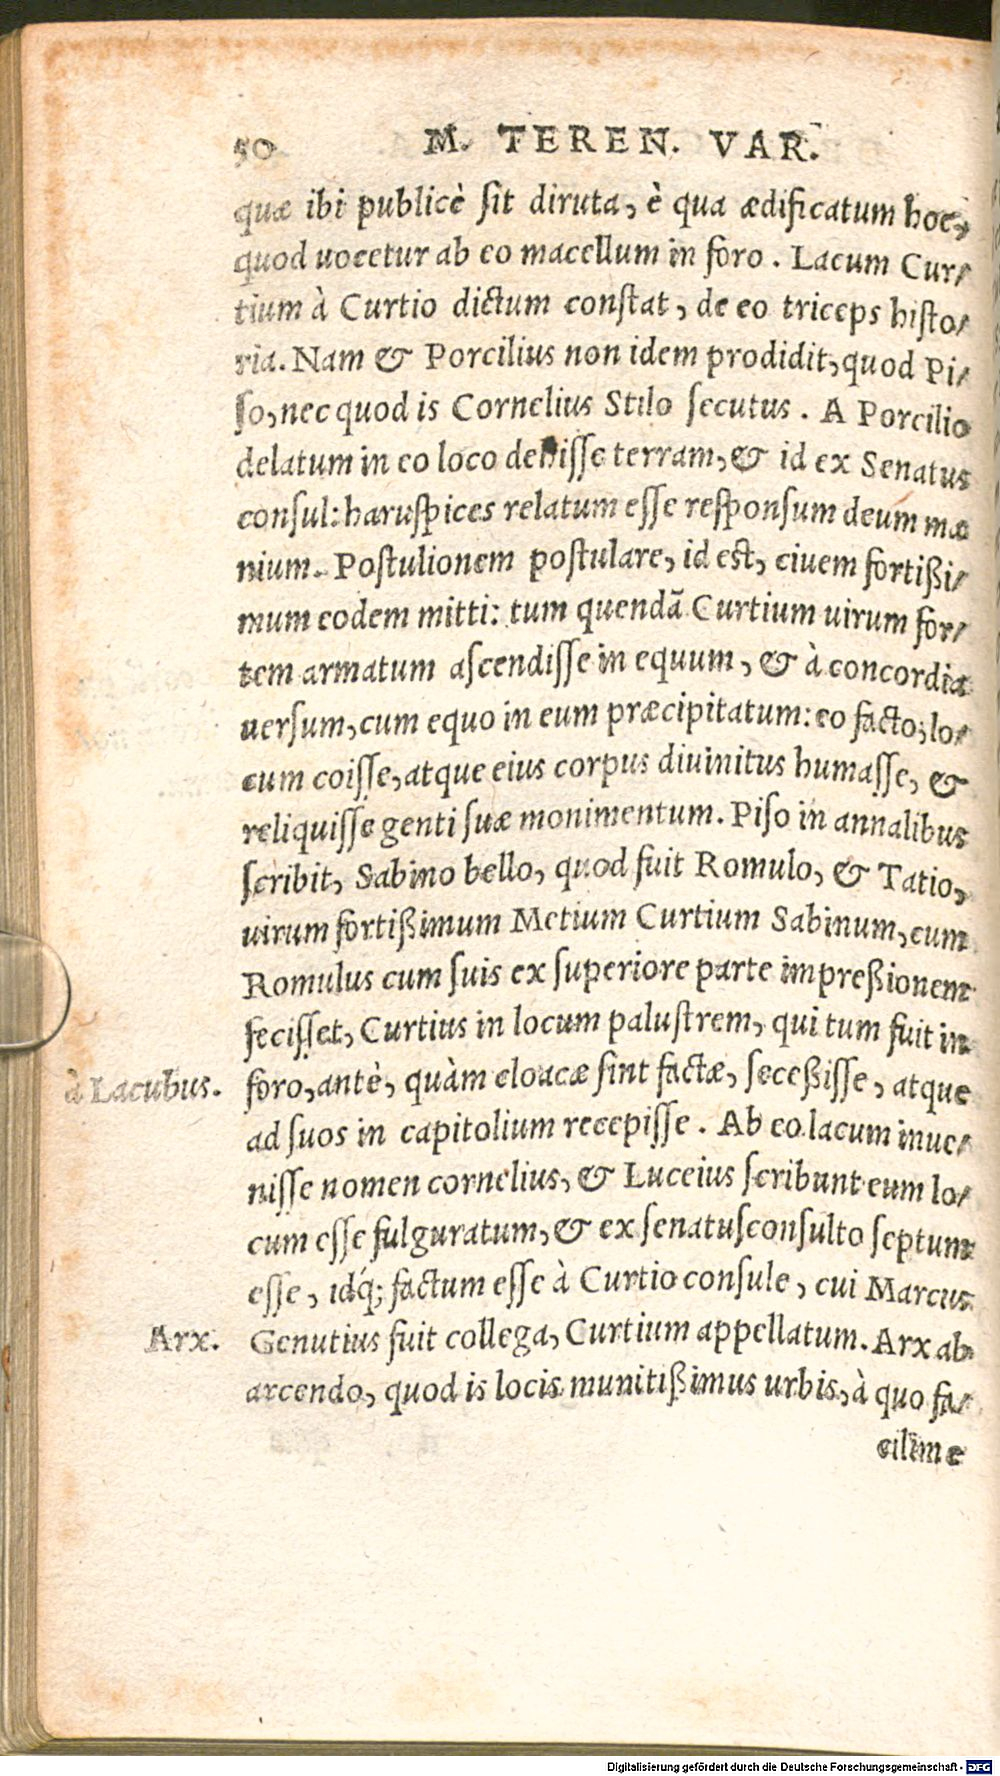 50 M. TEREN. VAR.
quæ ibi publicè sit diruta, è qua ædificatum hoc,
quod uocetur ab eo macellum in foro. Lacum Cur-
tium à Curtio dictum constat, de eo triceps histo-
ria. Nam & Porcilius non idem prodidit, quod Pi-
so, nec quod is Cornelius Stilo secutus. A Porcilio
delatum in eo loco dehisse terram, & id ex Senatus
consul: haruspices relatum esse responsum deum mæ
nium. Postulionem postulare, id est, ciuem fortißi-
mum eodem mitti: tum quendã Curtium uirum for-
tem armatum ascendisse in equum, & à concordia
uersum, cum equo in eum præcipitatum: eo facto, lo-
cum coisse, atque eius corpus diuinitus humasse, &
reliquisse genti suæ monimentum. Piso in annalibus
scribit, Sabino bello, quod fuit Romulo, & Tatio,
uirum fortißimum Metium Curtium Sabinum, cum
Romulus cum suis ex superiore parte impreßionem
fecisset, Curtius in locum palustrem, qui tum fuit in
à Lacubus. foro, antè, quàm cloacæ sint factæ, seceßisse, atque
ad suos in capitolium recepisse. Ab eo lacum inue-
nisse nomen cornelius, & Luceius scribunt eum lo-
cum esse fulguratum, & ex senatusconsulto septum
esse, idq́; factum esse à Curtio consule, cui Marcus
Arx. Genutius fuit collega, Curtium appellatum. Arx ab
arcendo, quod is locis munitißimus urbis, à quo fa-
cilime
Digitalisierung gefördert durch die Deutsche Forschungsgemeinschaft - DFG